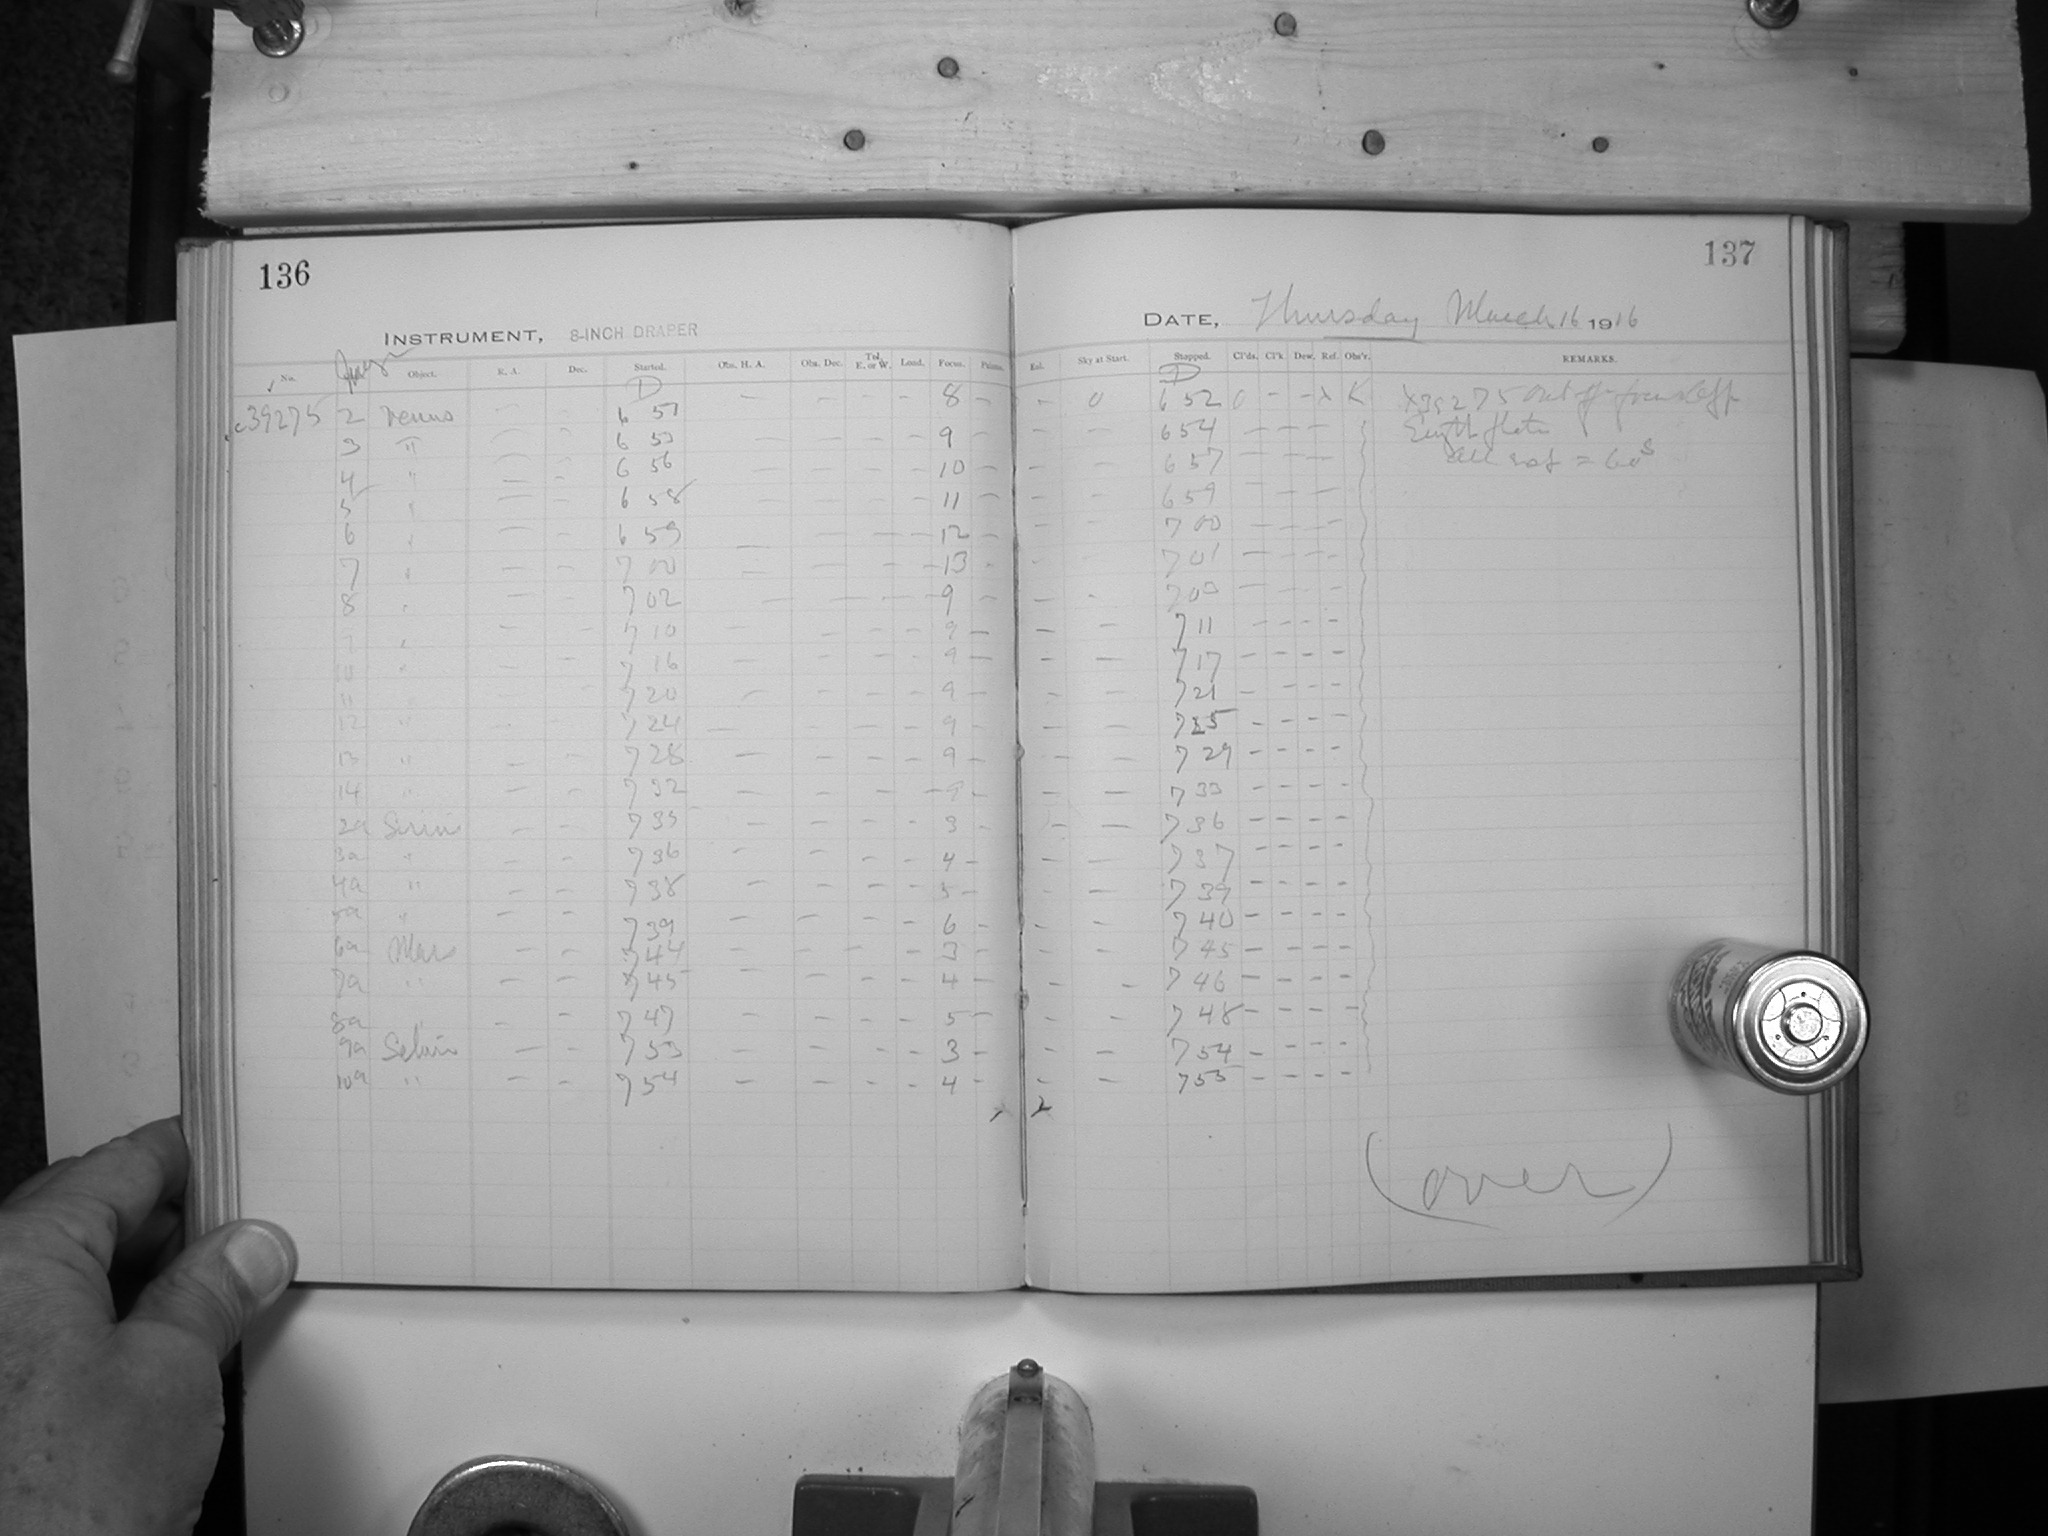 136
INSTRUMENT, 8-INCH DRAPER
No. Object. R. A. Dec. Started. Obs. H. A. Obs. Dec. Tel. E. or W. Load. Focus.
D
39275 2 Venus — — 6 51 — — — — 8 —
3 " — — 6 53 — — — — 9
4 " — — 6 56 — — — — 10 —
5 " — — 6 58 — — — — 11 —
6 " — 6 59 — — — 12 —
7 " — — 7 00 — — — — 13 —
8 " — — 7 02 — — — — 9 —
" — — 7 10 — — — — 9 —
10 " — — 7 16 — — — — 9 —
11 " — 7 20 — — — — 9 —
12 " — — 7 24 — — — — 9 —
13 " — — 7 28 — — — — 9 —
14 " — — 7 32 — — — — 9 —
2a — — 7 35 — — — — 3 —
3a " — — 7 36 — — — — 4 —
4a " — — 7 38 — — — — 5 —
5a " — — 7 39 — — — — 6 —
6a Mars — — 7 44 — — — — 3 —
7a " — — 7 45 — — — — 4 —
8a " — — 7 47 — — — — 5 —
9a — — 7 53 — — — — 3 —
10a " — — 7 54 — — — — 4 —
137
DATE, Thursday March 16 1916
Sky at Start. Stopped. Cl'ds. Cl'k. Dew. Ref. Obs'r. REMARKS.
D
— 0 6 52 0 — — X K X39275 out of focus
— — 6 54 — — —
— — 6 57 — — — = 60s
— — 6 59 — — —
— — 7 00 — — —
7 01 — — — —
— — 7 03 — — — —
— — 7 11 — — — —
— — 7 17 — — — —
— — 7 21 — — — —
— — 7 25 — — — —
— — 7 29 — — — —
— — 7 33 — — — —
— — 7 36 — — — —
— — 7 37 — — — —
— — 7 39 — — — —
— — 7 40 — — — —
— — 7 45 — — — —
— — 7 46 — — — —
— — 7 48 — — — —
— — 7 54 — — — —
— — 7 55 — — — —
(over)